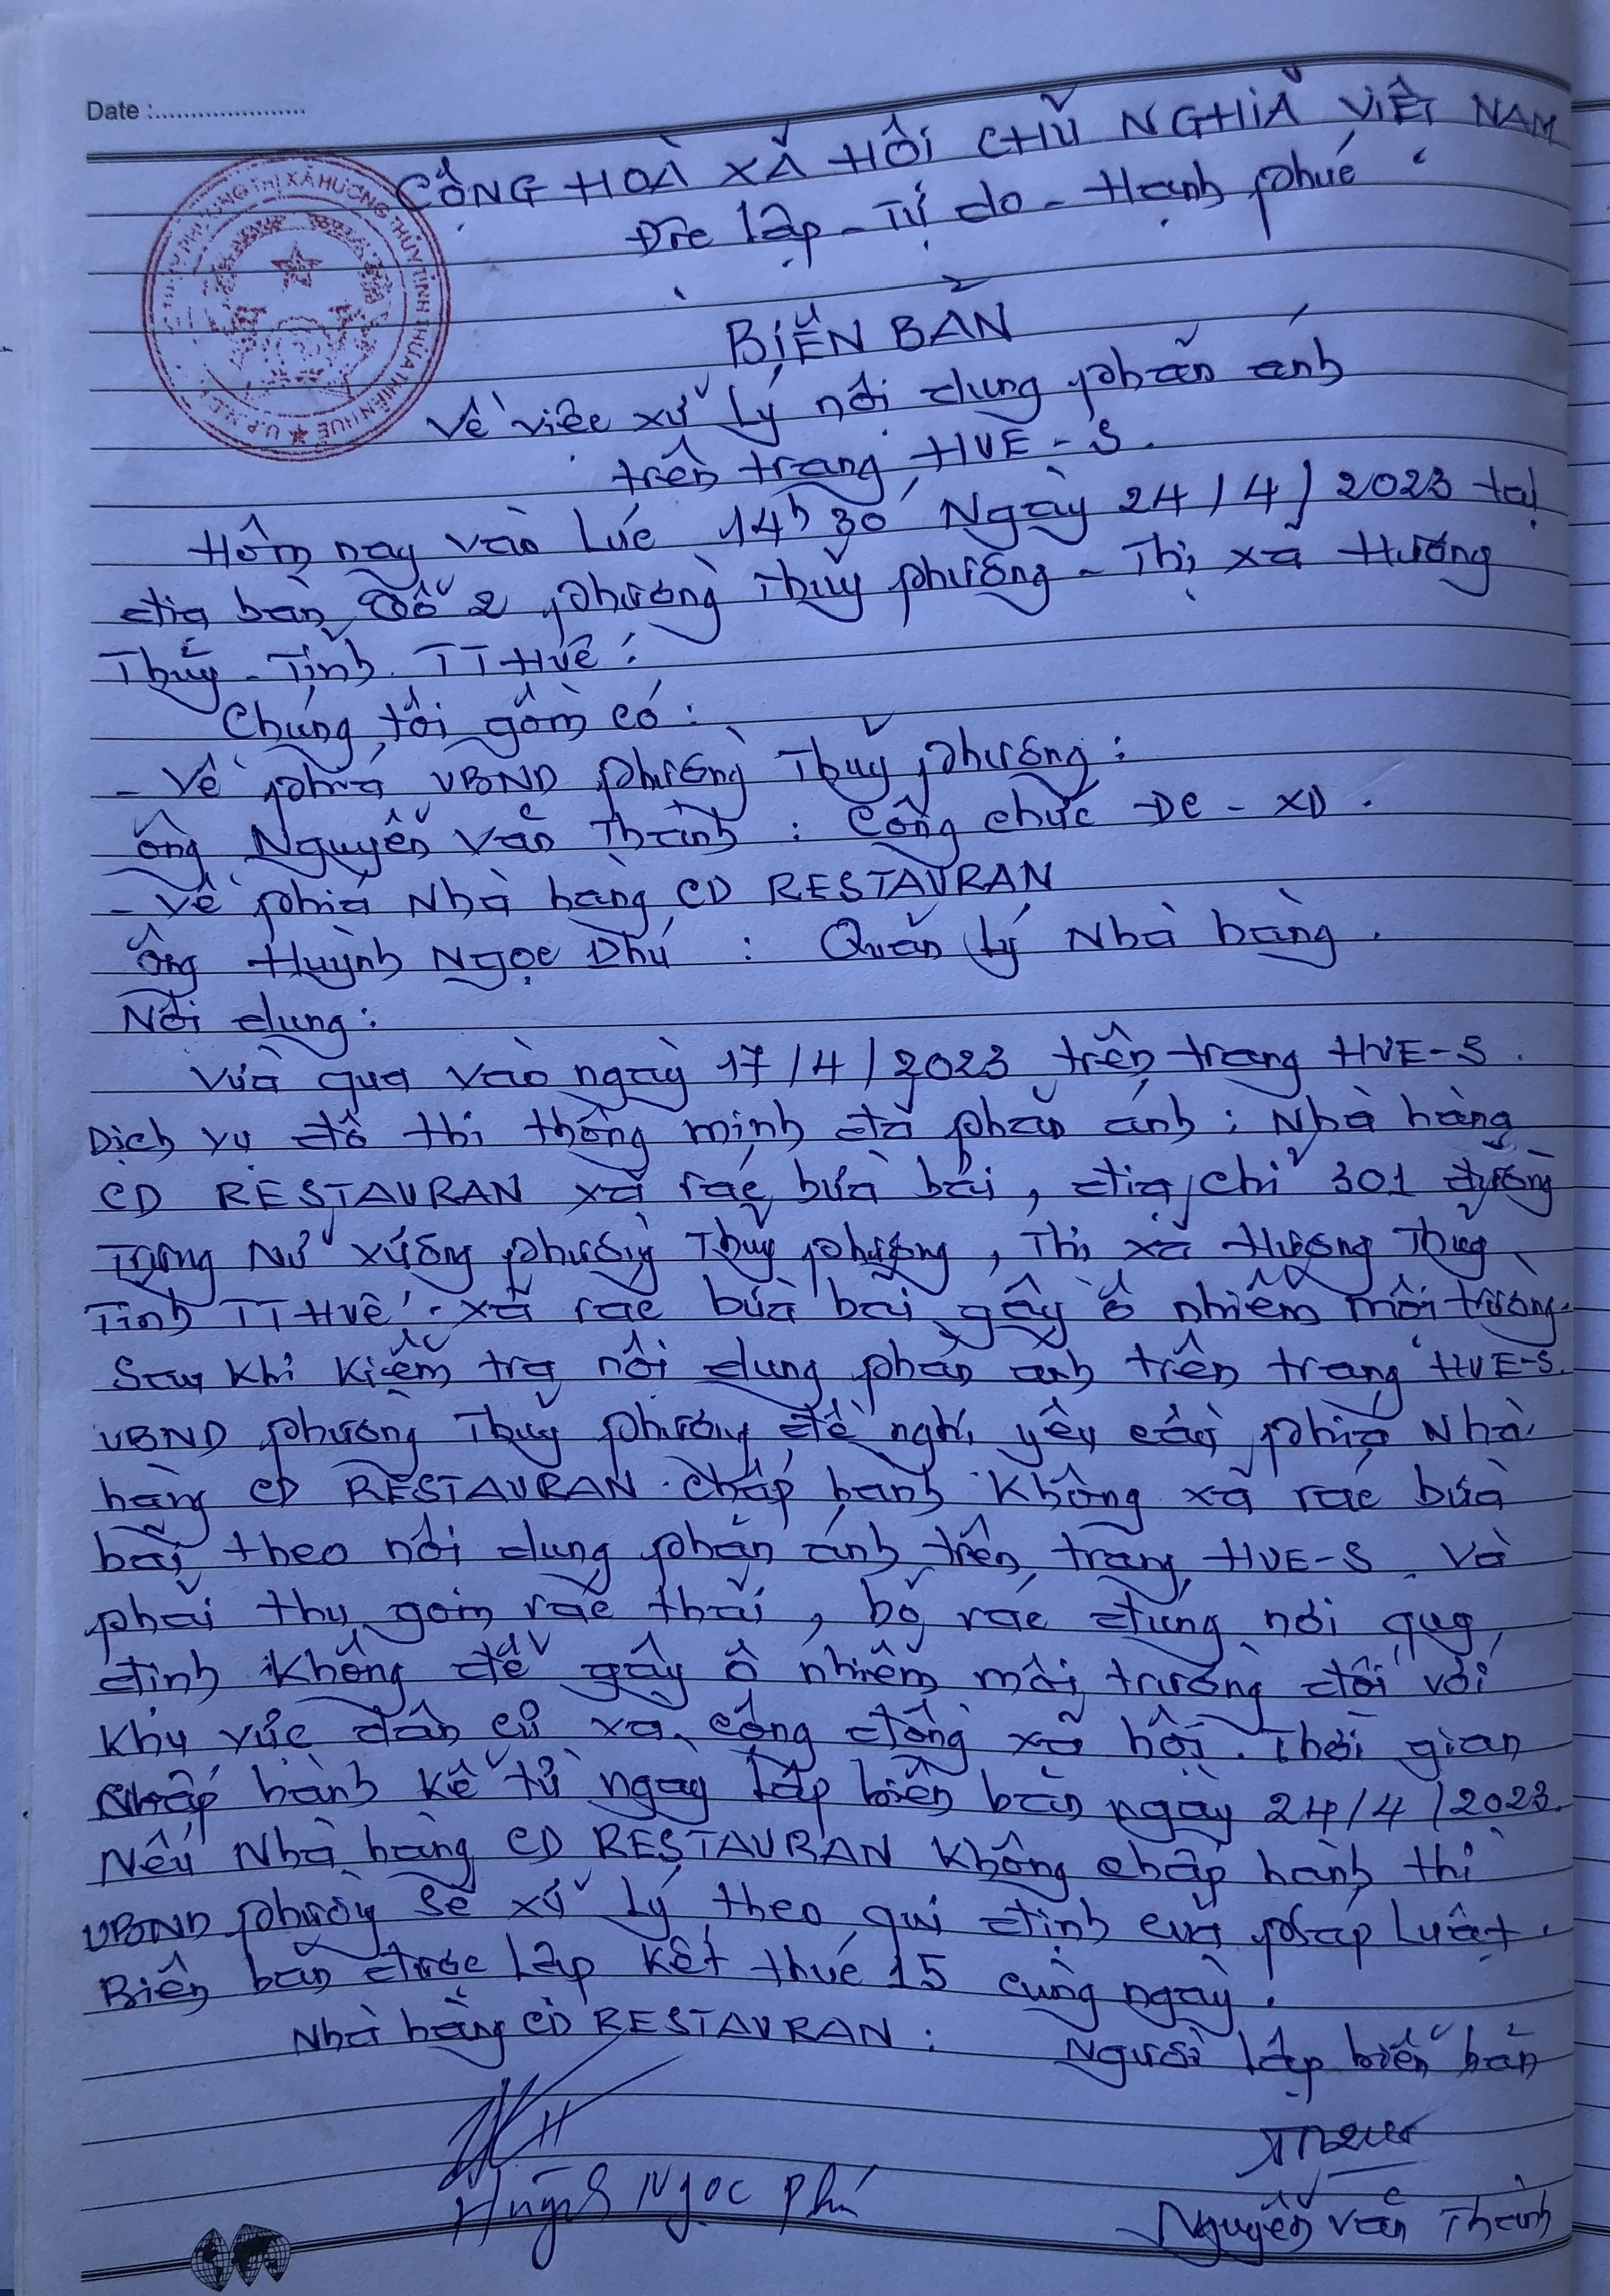 Date :......................
CỘNG HOÀ XÃ HỘI CHỦ NGHĨA VIỆT NAM
Độc lập - Tự do - Hạnh phúc
BIÊN BẢN
Về việc xử lý nội dung phản ánh
trên trang HUE-S.
Hôm nay vào lúc 14h30 Ngày 24/4/2023 tại
địa bàn Tổ 2 phường Thủy phương - Thị xã Hương
Thủy - Tỉnh TT Huế.
Chúng tôi gồm có:
- Về phía UBND phường Thủy phương:
Ông Nguyễn Văn Thành : Công chức ĐC - XD.
- Về phía Nhà hàng CD RESTAURAN
Ông Huỳnh Ngọc Phú : Quản lý Nhà hàng.
Nội dung:
Vừa qua vào ngày 17/4/2023 trên trang HUE-S.
Dịch vụ đô thị thông minh đã phản ánh: Nhà hàng
CD RESTAURAN xã rác bừa bãi, địa chỉ 301 đường
Trưng Nữ Vương phường Thủy phương, Thị xã Hương Thủy
Tỉnh TT Huế. xã rác bừa bãi gây ô nhiễm môi trường.
Sau khi kiểm tra nội dung phản ánh trên trang HUE-S.
UBND phường Thủy phương đề nghị yêu cầu phía Nhà
hàng CD RESTAURAN chấp hành không xã rác bừa
bãi theo nội dung phản ánh trên trang HUE-S. Và
phải thu gom rác thải, bỏ rác đúng nơi quy
định không để gây ô nhiễm môi trường đối với
khu vực dân cư và cộng đồng xã hội. Thời gian
chấp hành kể từ ngày lập biên bản ngày 24/4/2023.
Nếu Nhà hàng CD RESTAURAN không chấp hành thì
UBND phường sẽ xử lý theo qui định của pháp luật.
Biên bản được lập kết thúc 15 cùng ngày.
Nhà hàng CD RESTAURAN: Người lập biên bản
Huỳnh Ngọc Phú Nguyễn Văn Thành